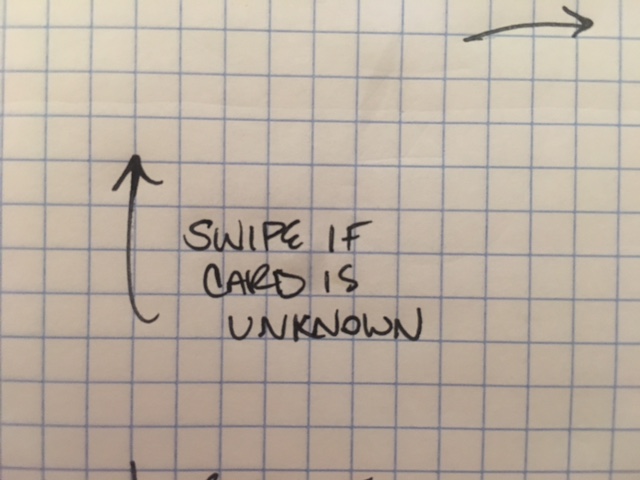 SWIPE IF
CARD IS
UNKNOWN